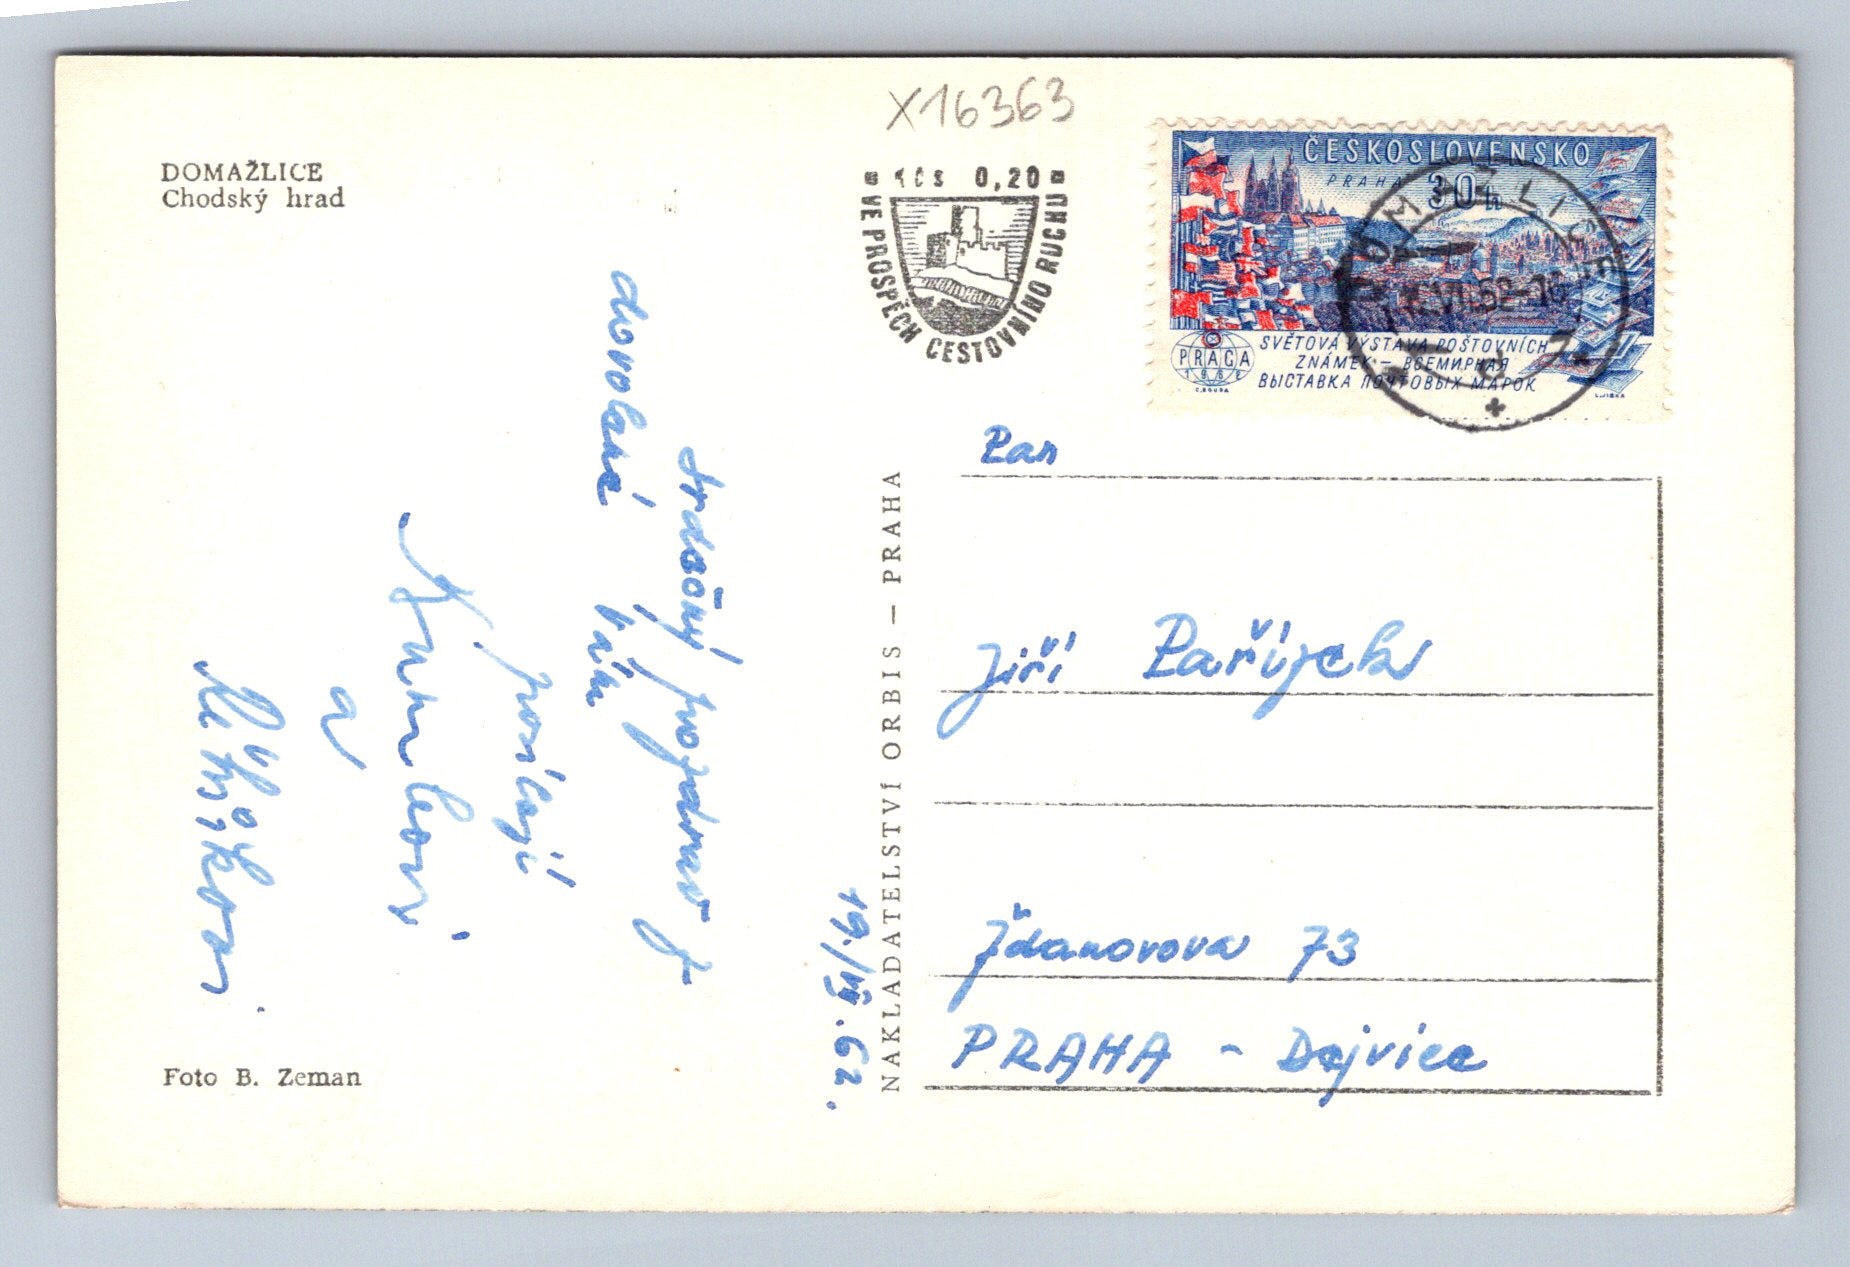 X16363
DOMAŽLICE
Chodský hrad
Kčs 0,20
VE PROSPĚCH CESTOVNÍHO RUCHU
ČESKOSLOVENSKO
PRAHA 30h
PRAGA
1962
SVĚTOVÁ VÝSTAVA POŠTOVNÍCH
ZNÁMEK — ВСЕМИРНАЯ
ВЫСТАВКА ПОЧТОВЫХ МАРОК
C. BOUDA
DOMAŽLICE
19./VII.62.
Srdečný pozdrav z
dovolené Vám
posílají
a
NAKLADATELSTVÍ ORBIS — PRAHA
Pan
Jiří Pařízek
Ždanovova 73
PRAHA - Dejvice
Foto B. Zeman